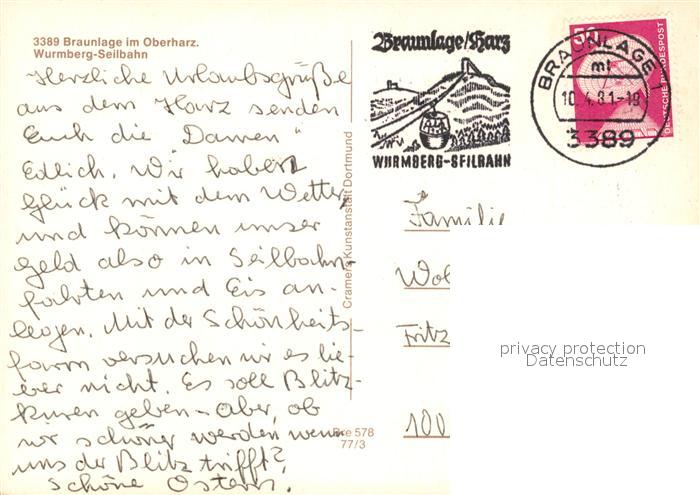 3389 Braunlage im Oberharz.
Wurmberg-Seilbahn
Herzliche Urlaubsgrüße
aus dem Harz senden
Euch die "Damen"
Edlich. Wir haben
Glück mit dem Wetter,
und können unser
Geld also in Seilbahn-
fahrten und Eis an-
legen. Mit der Schönheits-
farm versuchen wir es lie-
ber nicht. Es soll Blitz-
kuren geben - Aber, ob
wir schöner werden wenn
uns der Blitz trifft?
Schöne Ostern.
Cramers Kunstanstalt Dortmund
Bre 578
77/3
Braunlage/Harz
WURMBERG-SEILBAHN
BRAUNLAGE
mt
10.4.81-19
3389
50
DEUTSCHE BUNDESPOST
Familie
Wol
Fritz
100
privacy protection
Datenschutz